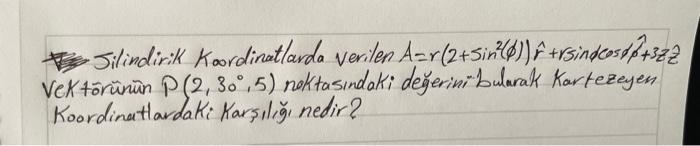 Silindirik Koordinatlarda verilen A=r(2+sin²(φ))r̂+rsinφcosφφ̂+3zẑ
Vektörünün P(2,30°,5) noktasındaki değerini bularak Kartezeyen
Koordinatlardaki Karşılığı nedir?